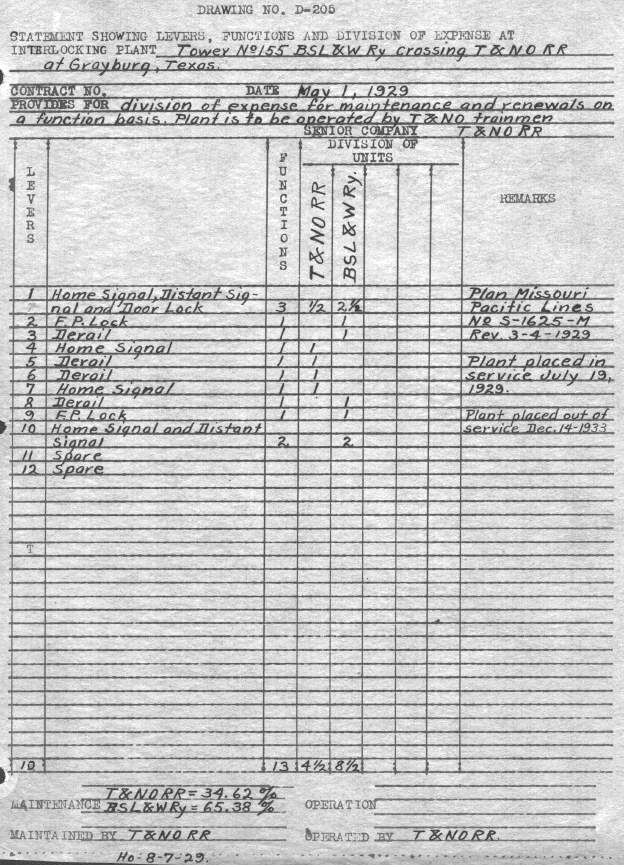 DRAWING NO. D-205
STATEMENT SHOWING LEVERS, FUNCTIONS AND DIVISION OF EXPENSE AT
INTERLOCKING PLANT Tower No 155 BSL&W Ry crossing T&NO RR
at Grayburg, Texas.
CONTRACT NO. DATE May 1, 1929
PROVIDES FOR division of expense for maintenance and renewals on
a function basis. Plant is to be operated by T&NO trainmen
SENIOR COMPANY T&NO RR
LEVERS FUNCTIONS DIVISION OF UNITS REMARKS
T&NO RR BSL&W Ry.
1 Home Signal, Distant Sig- Plan Missouri
nal and Door Lock 3 1/2 2 1/2 Pacific Lines
2 F.P. Lock 1 1 No S-1625-M
3 Derail 1 1 Rev. 3-4-1929
4 Home Signal 1 1
5 Derail 1 1 Plant placed in
6 Derail 1 1 service July 19,
7 Home Signal 1 1 1929.
8 Derail 1 1
9 F.P. Lock 1 1 Plant placed out of
10 Home Signal and Distant service Dec. 14-1933
Signal 2 2
11 Spare
12 Spare
T
10 13 4 1/2 8 1/2
T&NO RR = 34.62 %
MAINTENANCE BSL&W Ry = 65.38 % OPERATION
MAINTAINED BY T&NO RR OPERATED BY T&NO RR.
Ho-8-7-29.